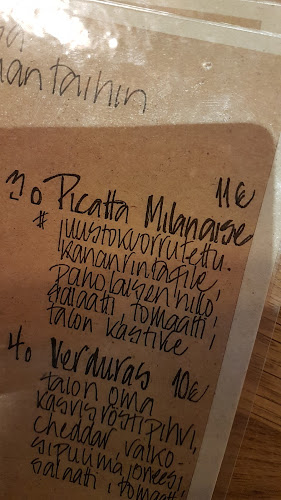 antaihin
3. Picatta Milanaise 11€
* juustokuorrutettu
kananrintafile,
paholaisenhilo,
salaatti, tomaatti,
talon kastike
4. Verduras 10€
talon oma
kasvisröstipihvi,
cheddar, valko-
sipulimajoneesi,
salaatti, tomaatti,